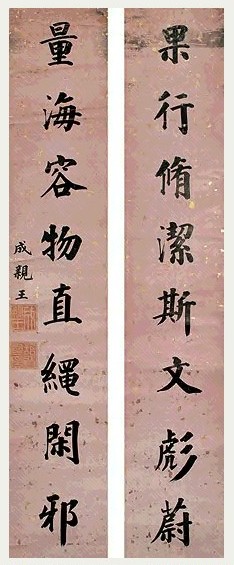 果行脩潔斯文彪蔚
量海容物直繩閑邪
成親王